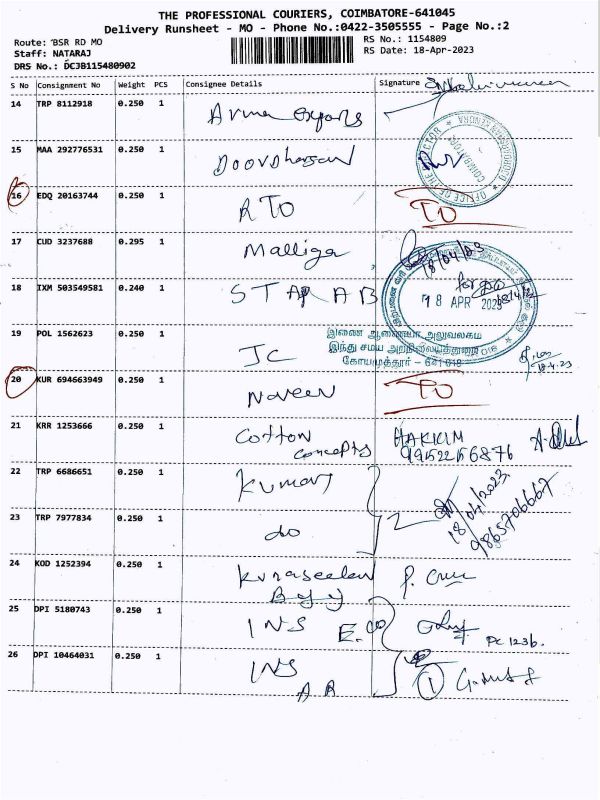 THE PROFESSIONAL COURIERS, COIMBATORE-641045
Delivery Runsheet - MO - Phone No.:0422-3505555 - Page No.:2
Route: BSR RD MO
Staff: NATARAJ
DRS No.: DCJB115480902
RS No.: 1154809
RS Date: 18-Apr-2023
S No Consignment No Weight PCS Consignee Details Signature
14 TRP 8112918 0.250 1
15 MAA 292776531 0.250 1 Doordharsan
16 EDQ 20163744 0.250 1 RTO
17 CUD 3237688 0.295 1 Malliga 18/04/23
18 IXM 503549581 0.240 1 STAR AB 18 APR 2023
19 POL 1562623 0.250 1 JC
இணை ஆணையர் அலுவலகம்
இந்து சமய அறநிலையத்துறை
கோயமுத்தூர் - 641 018
18.4.23
20 KUR 694663949 0.250 1 Naveen
21 KRR 1253666 0.250 1 Cotton Concepts HAKKIM
22 TRP 6686651 0.250 1 Kumar
18/04/2023
9865706667
23 TRP 7977834 0.250 1 do
24 KOD 1252394 0.250 1
25 DPI 5180743 0.250 1 INS E.CO PC 1236.
26 DPI 10464031 0.250 1 INS AR 1